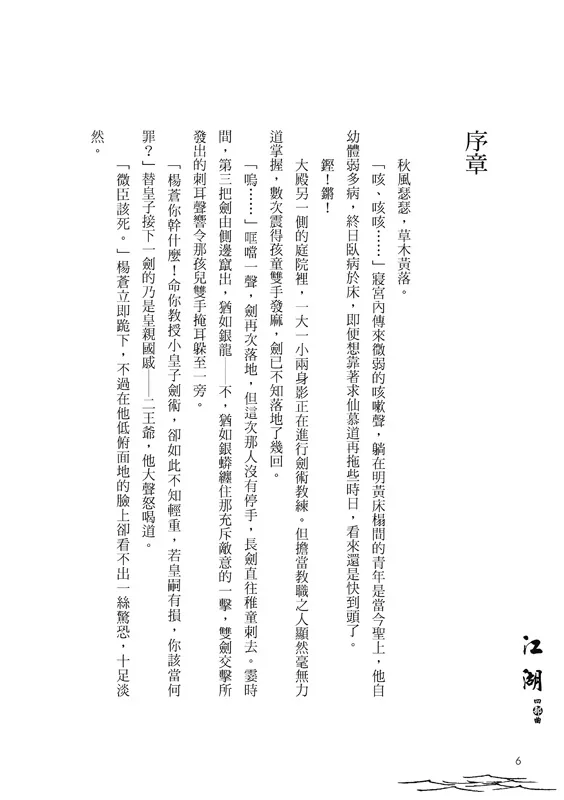 序章
秋風瑟瑟，草木黃落。
「咳、咳咳……」寢宮內傳來微弱的咳嗽聲，躺在明黃床榻間的青年是當今聖上，他自
幼體弱多病，終日臥病於床，即便想靠著求仙慕道再拖些時日，看來還是快到頭了。
鏗！鏘！
大殿另一側的庭院裡，一大一小兩身影正在進行劍術教練。但擔當教職之人顯然毫無力
道掌握，數次震得孩童雙手發麻，劍已不知落地了幾回。
「嗚……」哐噹一聲，劍再次落地，但這次那人沒有停手，長劍直往稚童刺去。霎時
間，第三把劍由側邊竄出，猶如銀龍——不，猶如銀蟒纏住那充斥敵意的一擊，雙劍交擊所
發出的刺耳聲響令那孩兒雙手掩耳躲至一旁。
「楊蒼你幹什麼！命你教授小皇子劍術，卻如此不知輕重，若皇嗣有損，你該當何
罪？」替皇子接下一劍的乃是皇親國戚——二王爺，他大聲怒喝道。
「微臣該死。」楊蒼立即跪下，不過在他低俯面地的臉上卻看不出一絲驚恐，十足淡
然。
江湖
四部曲
6